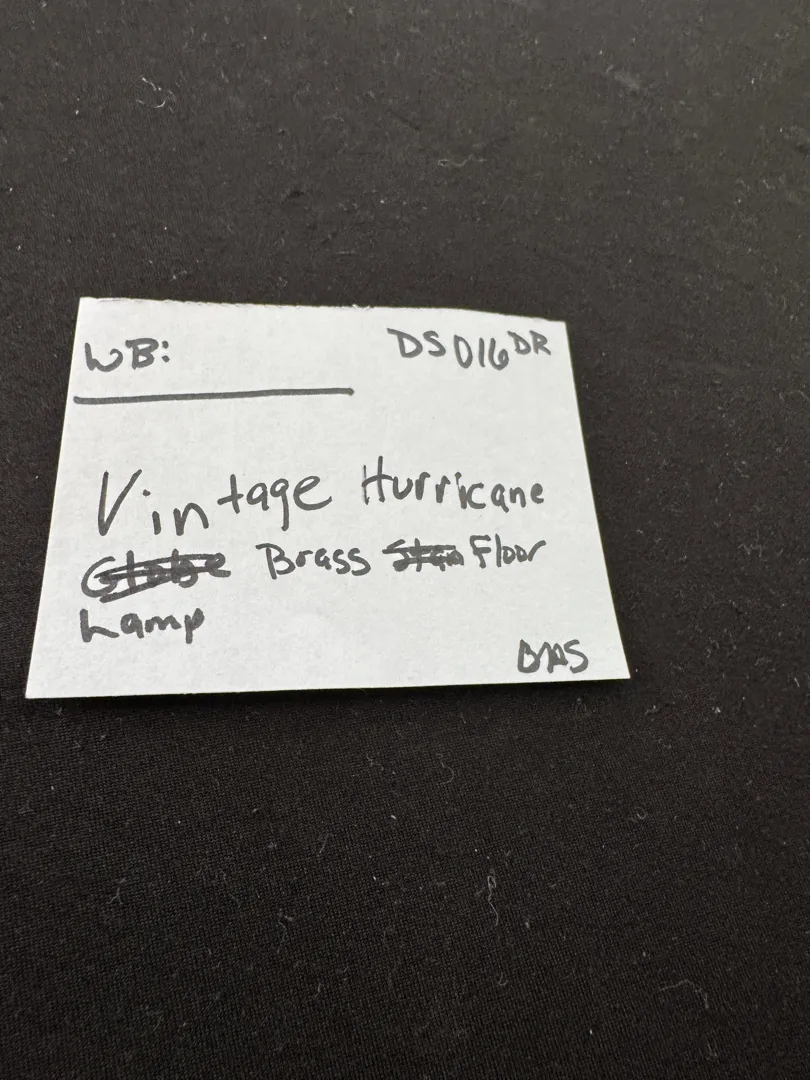 WB: DS016DR
Vintage Hurricane
Globe Brass Floor
Lamp